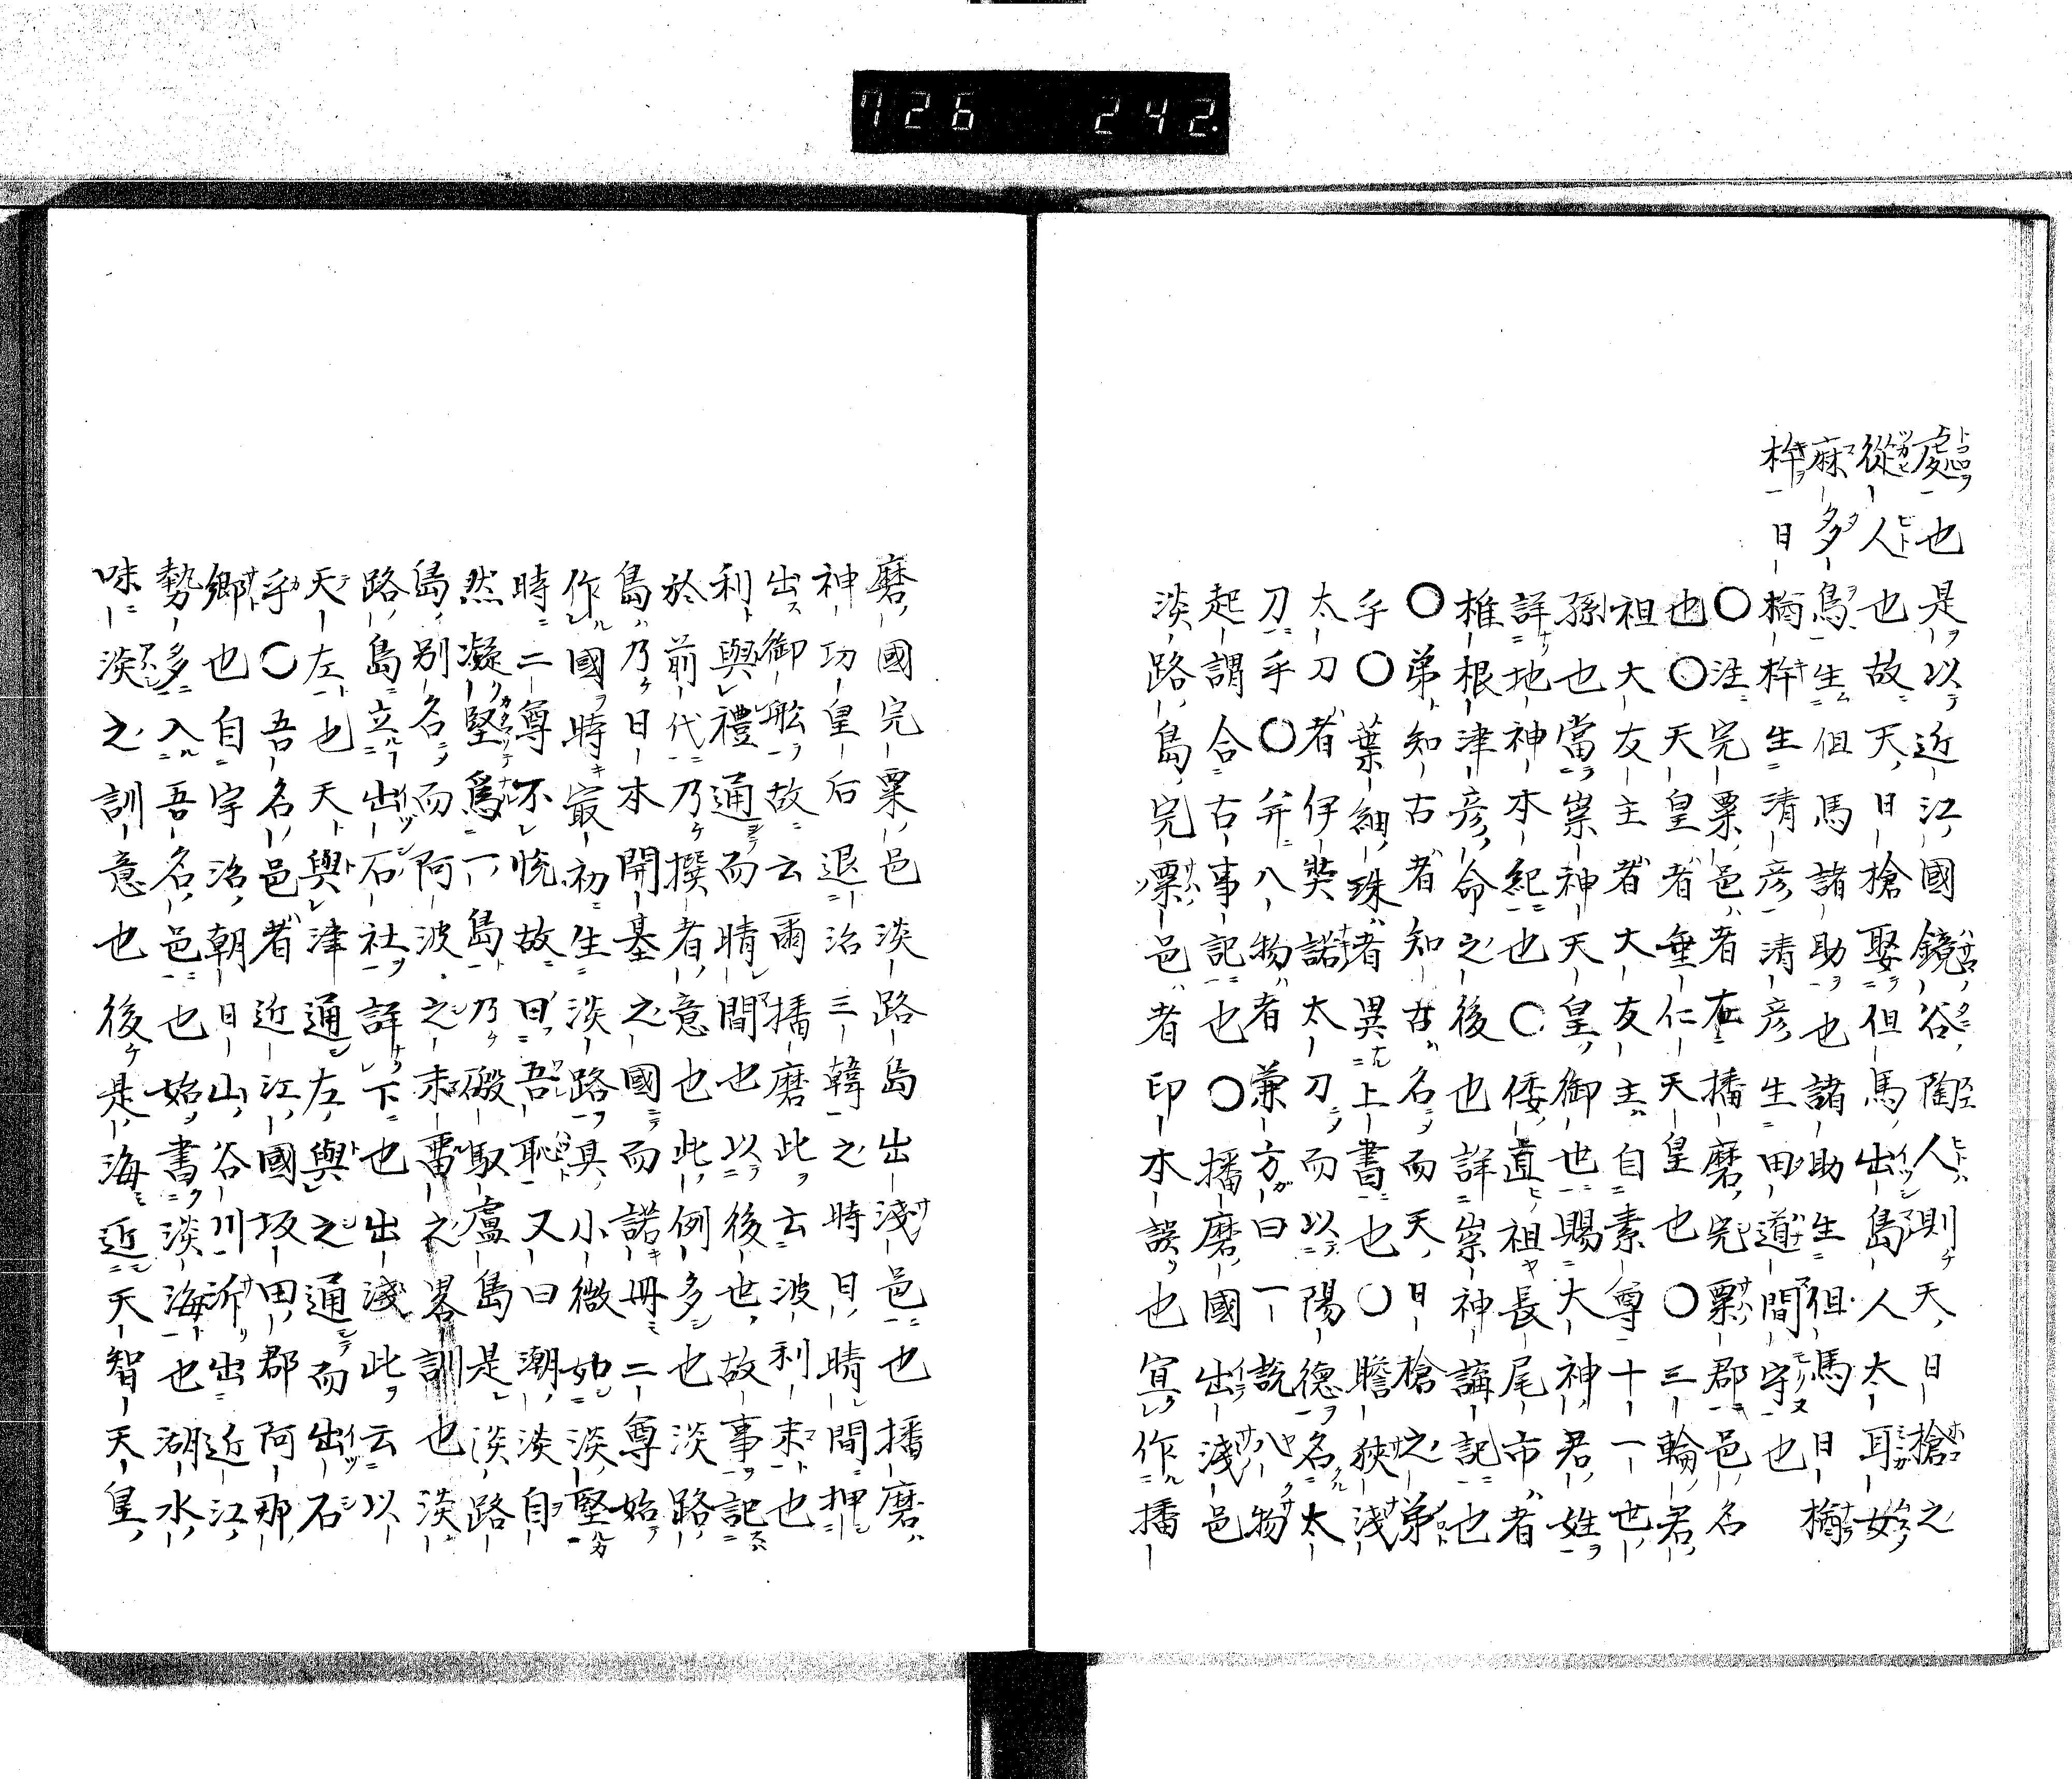 726 242.
處也是以近江國鏡谷陶人則天日槍之
從人也故天日槍娶但馬出島人太耳女
麻多烏生但馬諸助也諸助生但馬日楢
杵日楢杵生清彦清彦生田道間守也
○注完粟邑者在播磨完粟郡邑名
也○天皇者垂仁天皇也○三輪君
祖大友主者大友主自素尊十一世
孫也當崇神天皇御世賜大神君姓
詳地神本紀也○倭直祖長尾市者
椎根津彦命之後也詳崇神講記也
○弟知古者知古名而天日槍之弟
乎○葉細珠者異上書也○膽狹淺
太刀者伊奘諾太刀而以陽德名太
刀乎○并八物者兼方曰一說八物
起謂合古事記也○播磨國出淺邑
淡路島完粟邑者印本誤也宜作播
磨國完粟邑淡路島出淺邑也播磨
神功皇后退治三韓之時日晴間押
出御舩故云爾播磨此云波利末也
利與禮通而晴間也以後世故事記
於前代乃撰者意也此例多也淡路
島乃日本開基之國而諾冊二尊始
作國時最初生淡路具小微如淡堅
時二尊不悦故曰吾恥又曰潮淡自
然凝堅爲一島乃磤馭盧島是淡路
島別名而阿波之末畨之畧訓也淡
路島立出石社詳下也出淺此云以
天左也天與津通左與之通而出石
乎○吾名邑者近江國坂田郡阿那
鄉也自宇治朝日山谷川泝出近江
勢多入吾名邑也始書淡海也湖水
味淡之訓意也後是海近天智天皇